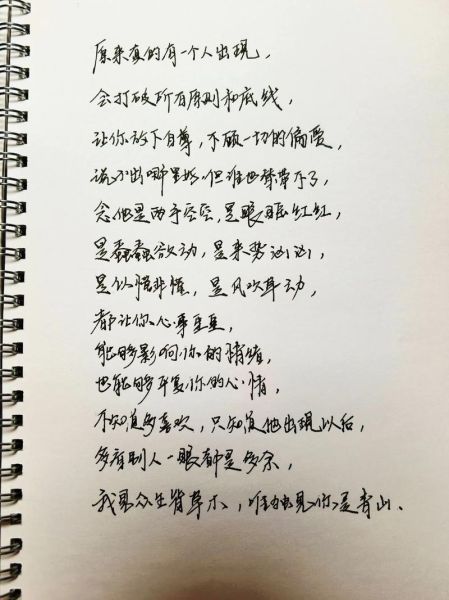 原来真的有一个人出现，
会打破所有原则和底线，
让你放下自尊，不顾一切的偏爱，
说不出哪里好，但谁也替带不了，
念他是两手空空，是眼眶红红，
是蠢蠢欲动，是来势汹汹，
是似懂非懂，是风吹草动，
都让你心事重重，
能够影响你的情绪，
也能够平复你的心情，
不知道多喜欢，只知道他出现以后，
多看别人一眼都是多余，
我见众生皆草木，唯有见你是青山．